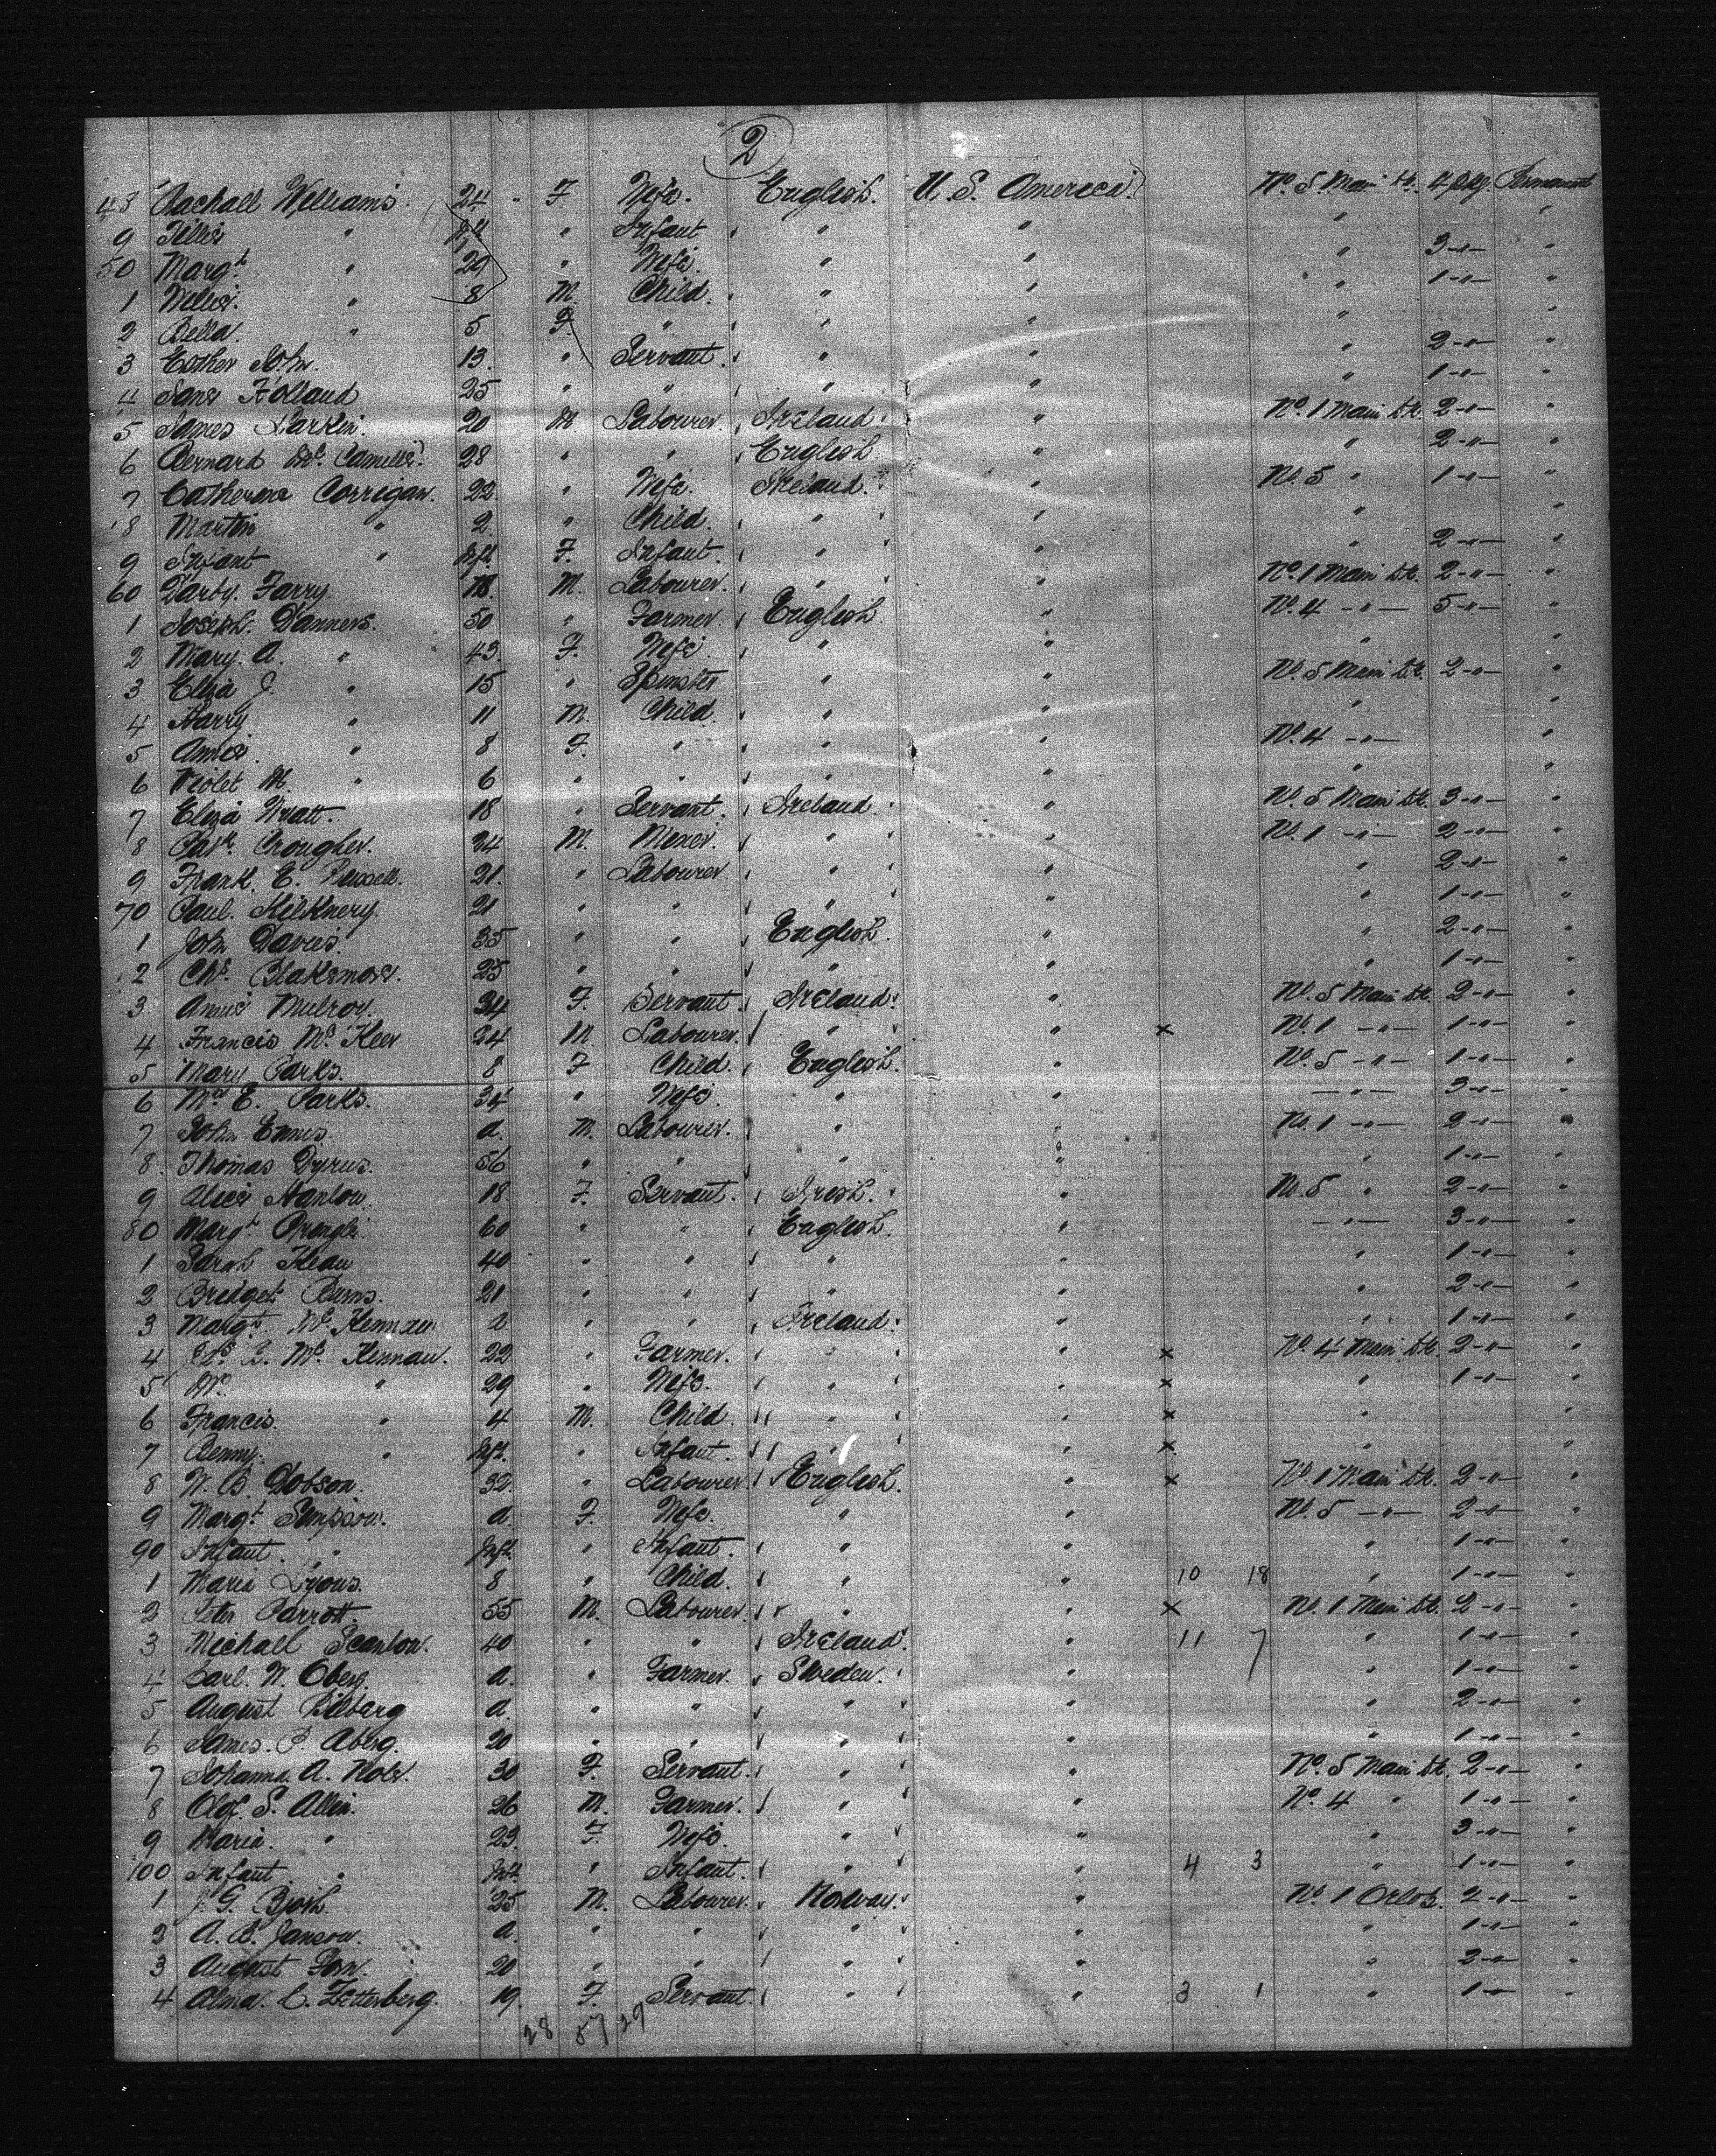 2
48 Rachall Williams. 24 " F Wife. English. U. S. America. No. 5 Main Dk. 4 pkg. Permanent
9 " Inft " Infant " " " "
50 Margt " 29 " Wife. " " " 3 -"- "
1 Willie. " 8 M. Child. " " " 1 -"- "
2 Bella. " 5 F. " " " " "
3 Esther John. 13. " Servant. " " " 2 -"- "
4 Jane Holland 25 " " " " " 1 -"- "
5 James Larkin. 20 M. Labourer. Ireland. " No. 1 Main Dk. 2 -"- "
6 Bernard Mc. 28 " " English " " 2 -"- "
7 Catherine Corrigan. 22. " Wife. Ireland. " No. 5 " 1 -"- "
8 Martin " 2 " Child. " " " "
9 Infant " Inft. F. Infant. " " " 2 -"- "
60 Darby. Farry 18. M. Labourer. " " No. 1 Main Dk. 2 -"- "
1 Joseph. Danners. 50 " Farmer. English " No. 4 -"- 5 -"- "
2 Mary. A. " 43. F. Wife. " " " "
3 Eliza J. " 15 " Spinster " " No. 5 Main Dk. 2 -"- "
4 Harry " 11 M. Child. " " " "
5 Annie. " 8 F. " " " No. 4 -"- "
6 Violet M. " 6 " " " " " "
7 Eliza Pratt. 18 " Servant. Ireland. " No. 5 Main Dk. 3 -"- "
8 Patk. Crougher. 24 M. Miner. " " No. 1 -"- 2 -"- "
9 Frank. E. Russell. 21. " Labourer " " " 2 -"- "
70 Paul. Kilknery. 21 " " " " " 1 -"- "
1 John Davies 35 " " English. " " 2 -"- "
2 Chs. Blakemore. 25 " " " " " 1 -"- "
3 Annie Mulroy. 34 F. Servant. Ireland. " No. 5 Main Dk. 2 -"- "
4 Francis Mc. Keer 24 M. Labourer. " " x No. 1 -"- 1 -"- "
5 Mary Parks. 8 F Child. English. " No. 5 -"- 1 -"- "
6 Mrs E. Parks. 34 " Wife. " " -"- 3 -"- "
7 John Ennis a. M. Labourer. " " No. 1 -"- 2 -"- "
8. Thomas 56 " " " " " 1 -"- "
9 Alice Hanlow. 18. F. Servant. Irish. " No. 5 " 2 -"- "
80 Margt. 60 " " English. " -"- 3 -"- "
1 Sarah Kean 40 " " " " " 1 -"- "
2 Bridget Burns. 21 " " " " " 2 -"- "
3 Margt. Mc. Kennan a " " Ireland. " " 1 -"- "
4 Mc. Kennan. 22 " Farmer. " " x No. 4 Main Dk. 2 -"- "
5 Mrs " 29 " Wife. " " x " 1 -"- "
6 Francis. " 4 M. Child. " " x " "
7 Benny. " Inft. " Infant. " " x " "
8 W. B. Dobson. 32. " Labourer. English. " x No. 1 Main Dk. 2 -"- "
9 Margt. Simpson. a F. Wife. " " No. 5 -"- 2 -"- "
90 Infant. " Inft. " Infant. " " " 1 -"- "
1 Maria Lyons. 8 " Child. " " 10 18 " 1 -"- "
2 Peter Parrott. 55 M. Labourer. " " x No. 1 Main Dk. 2 -"- "
3 Michall Scanlon. 40 " " Ireland. " 11 7 " 1 -"- "
4 Carl. W. Oberg. a. " Farmer. Sweden. " " 1 -"- "
5 August Bilberg a. " " " " " 2 -"- "
6 James. P. Aberg. 20 " " " " " 1 -"- "
7 Johanna. A. 30 F. Servant. " " No. 5 Main Dk. 2 -"- "
8 Olof. S. Allin. 26 M. Farmer. " " No. 4 " 1 -"- "
9 Maria. " 23. F. Wife. " " " 3 -"- "
100 Infant " Inft. " Infant. " " 4 3 " 1 -"- "
1 J. G. 25 M. Labourer. Norway. " No. 1 Orlop. 2 -"- "
2 A. B. Janson. a. " " " " " 1 -"- "
3 August 20 " " " " " 2 -"- "
4 Alma. C. Zetterberg. 19. F. Servant. " " 3 1 " 1 -"- "
28 57 29